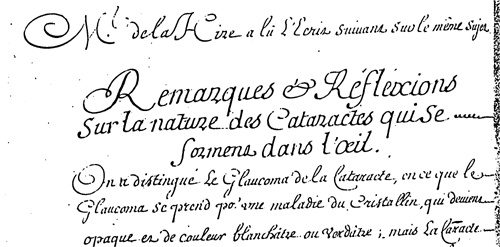 M.r de la Hire a lû L'Ecrit suivant sur le même sujet
Remarques & Réflexions
sur la nature des Cataractes qui se
forment dans l'œil.
On a distingué le Glaucoma de la Cataracte, en ce que le
Glaucoma se prend po.r une maladie du Cristallin, qui devient
opaque et de couleur blanchâtre ou verdâtre ; mais la Caracte